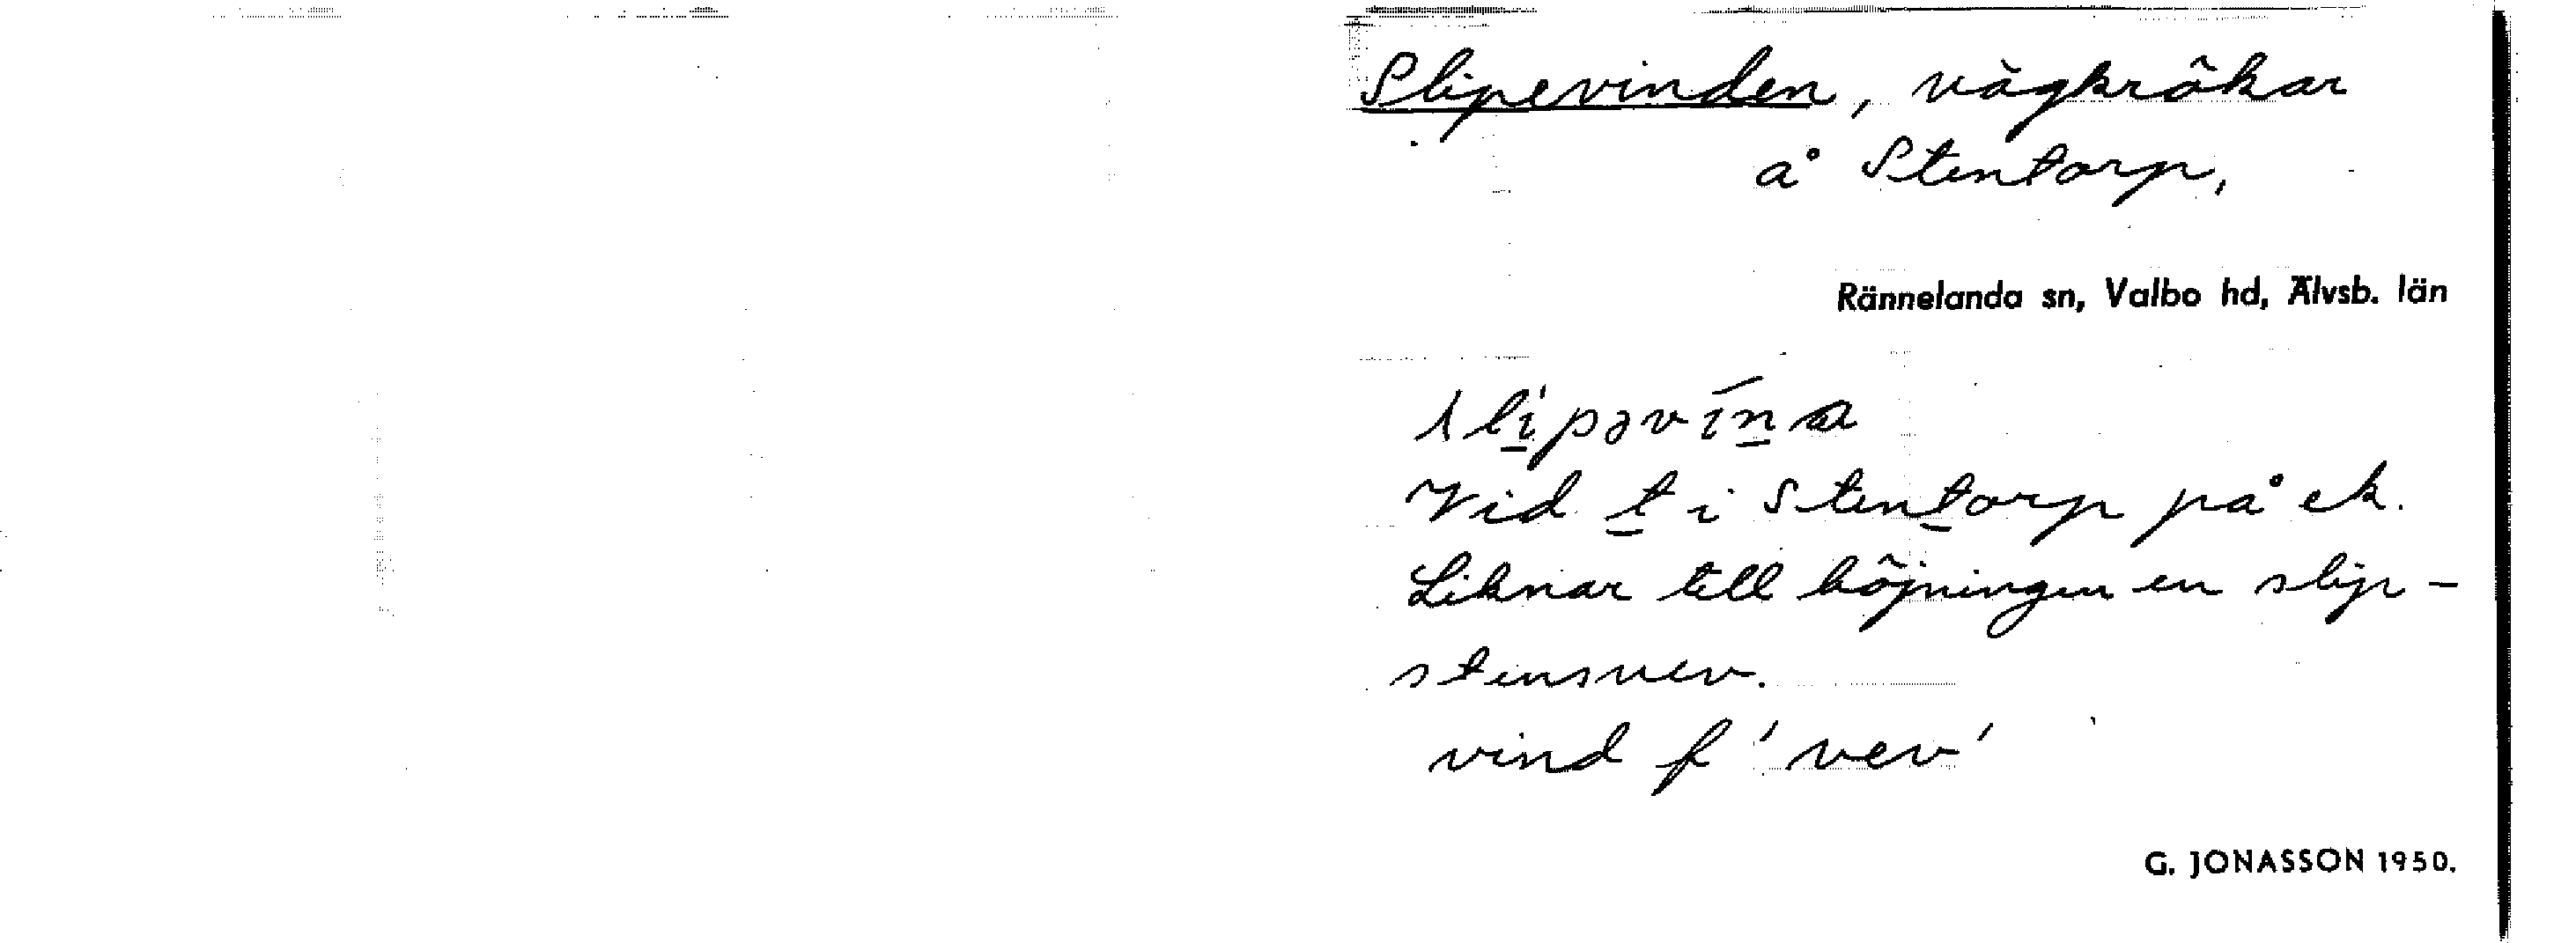 Slipevinden, vägkrökar
å Stentorp,
Rännelanda sn, Valbo hd, Älvsb. län
slipəvína
Vid t i Stentorp på ek.
Liknar till böjningen en slip-
stensvev.
vind f 'vev'
G. JONASSON 1950.